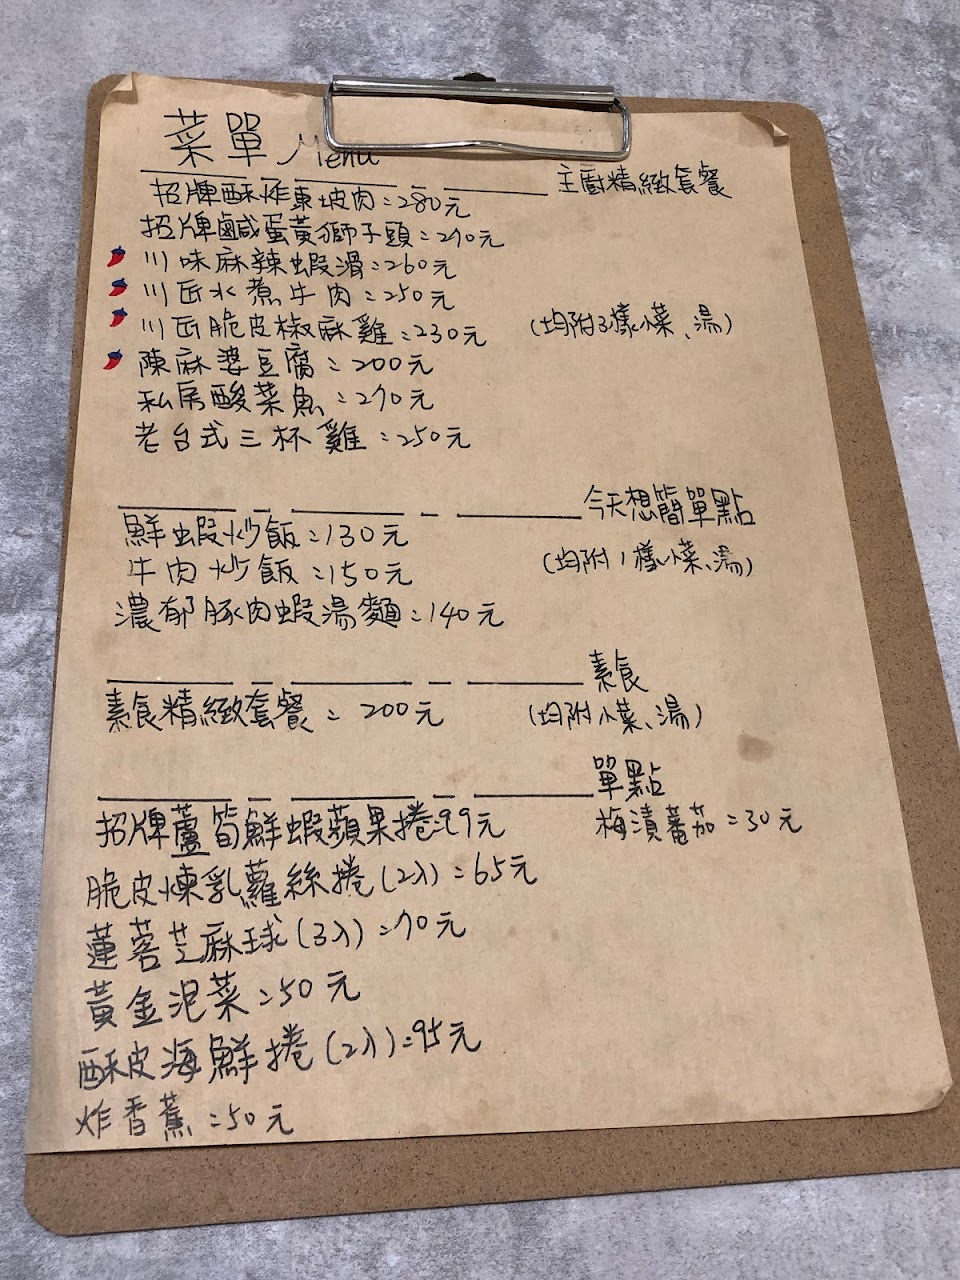 菜單 Menu
主廚精緻套餐
招牌酥炸東坡肉=280元
招牌鹹蛋黃獅子頭=270元
川味麻辣蝦滑=260元
川味水煮牛肉=250元
川味脆皮椒麻雞=230元
(均附3樣小菜、湯)
陳麻婆豆腐=200元
私房酸菜魚=270元
老台式三杯雞=250元
今天想簡單點
鮮蝦炒飯=130元
牛肉炒飯=150元
(均附1樣小菜、湯)
濃郁豚肉蝦湯麵=140元
素食
素食精緻套餐=200元
(均附小菜、湯)
單點
招牌蘆筍鮮蝦蘋果捲=99元
梅漬蕃茄=30元
脆皮煉乳蘿絲捲(2入)=65元
蓮蓉芝麻球(3入)=70元
黃金泡菜=50元
酥皮海鮮捲(2入)=95元
炸香蕉=50元